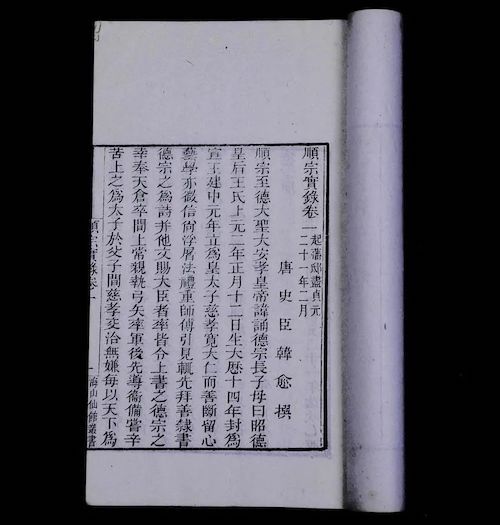 順宗實錄卷一起藩邸盡貞元二十一年二月
唐史臣韓愈撰
順宗至德大聖大安孝皇帝諱誦德宗長子母曰昭德
皇后王氏上元二年正月十二日生大歷十四年封爲
宣王建中元年立爲皇太子慈孝寬大仁而善斷留心
藝學亦微信尚浮屠法禮重師傅引見輒先拜善隸書
德宗之爲詩并他文賜大臣者率皆令上書之德宗之
幸奉天倉卒間上常親執弓矢率軍後先導衞備嘗辛
苦上之爲太子於父子間慈孝交洽無嫌每以天下爲
順宗實錄卷一
一
海山仙館叢書